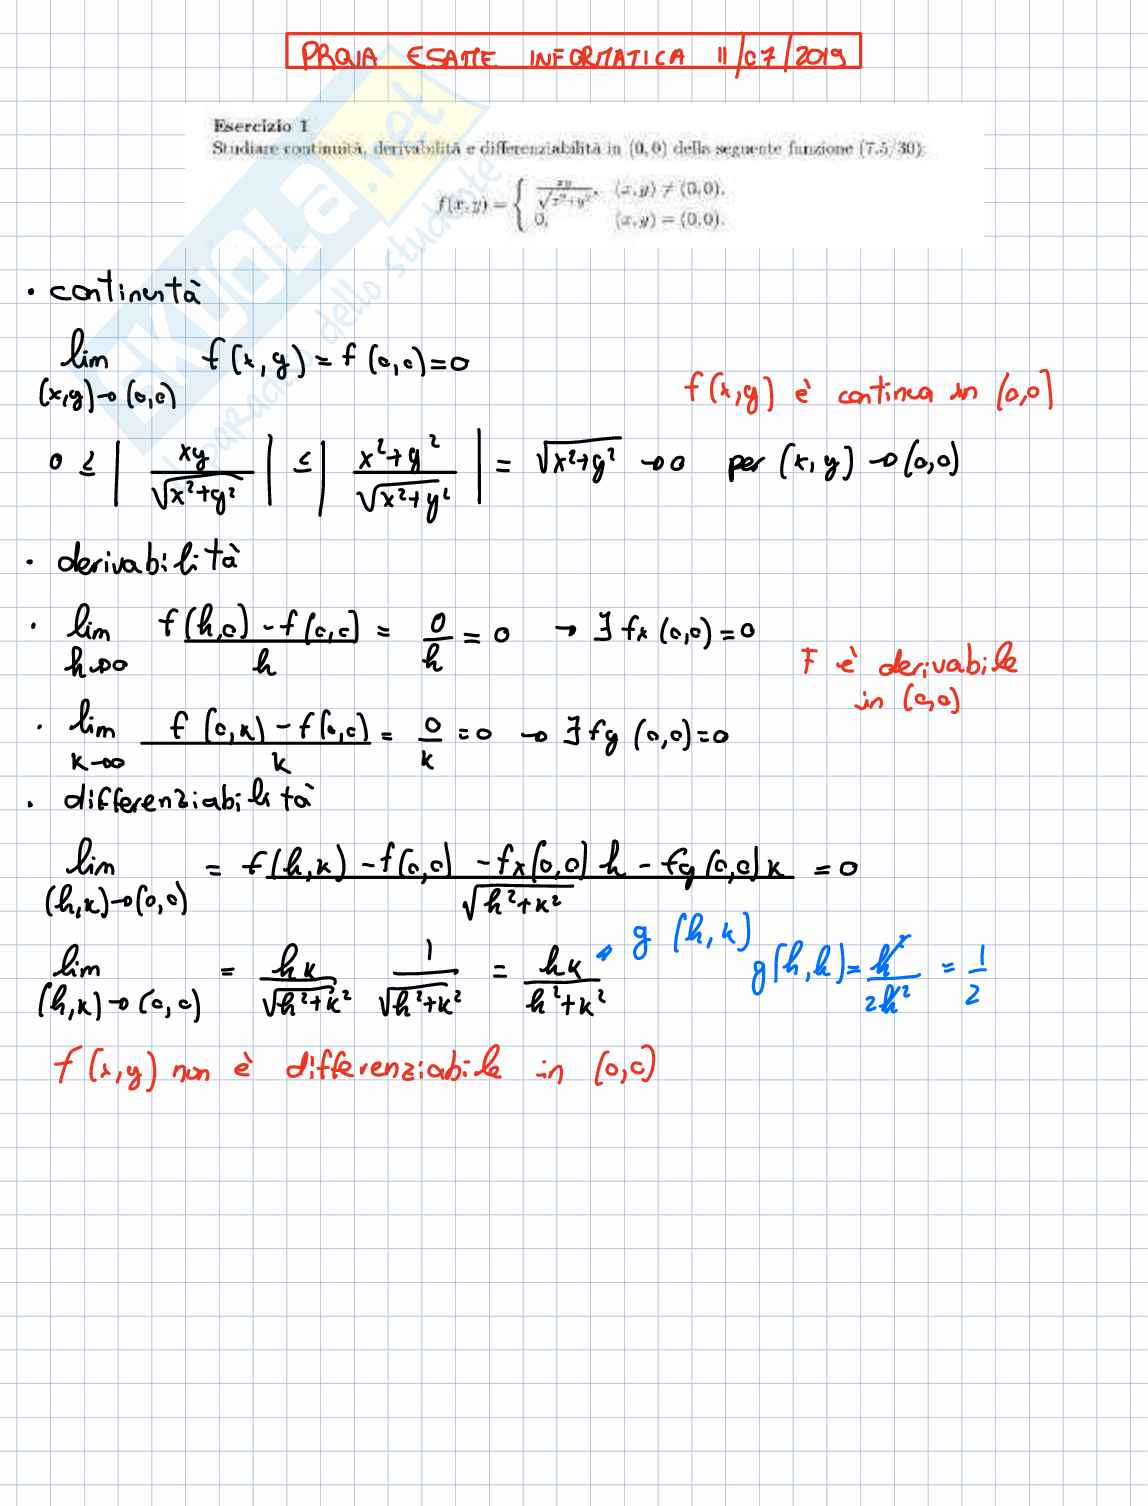 PROVA ESAME INFORMATICA 11/07/2019
Esercizio 1
Studiare continuità, derivabilità e differenziabilità in (0,0) della seguente funzione (7.5/30):
f(x,y) = { xy/√(x²+y²), (x,y) ≠ (0,0).
0, (x,y) = (0,0).
SKUOLA.net
il paradiso dello studente
• continuità
lim (x,y)→(0,0) f(x,y) = f(0,0) = 0
f(x,y) è continua in (0,0)
0 ≤ | xy/√(x²+y²) | ≤ | x²+y²/√(x²+y²) | = √(x²+y²) → 0 per (x,y) → (0,0)
• derivabilità
• lim h→0 f(h,0) - f(0,0)/h = 0/h = 0 → ∃ fx (0,0) = 0
F è derivabile
in (0,0)
• lim k→0 f(0,k) - f(0,0)/k = 0/k = 0 → ∃ fy (0,0) = 0
• differenziabilità
lim (h,k)→(0,0) = f(h,k) - f(0,0) - fx(0,0) h - fy(0,0) k/√(h²+k²) = 0
lim (h,k)→(0,0) = hk/√(h²+k²) 1/√(h²+k²) = hk/h²+k² → g(h,k) g(h,h) = h²/2h² = 1/2
f(x,y) non è differenziabile in (0,0)